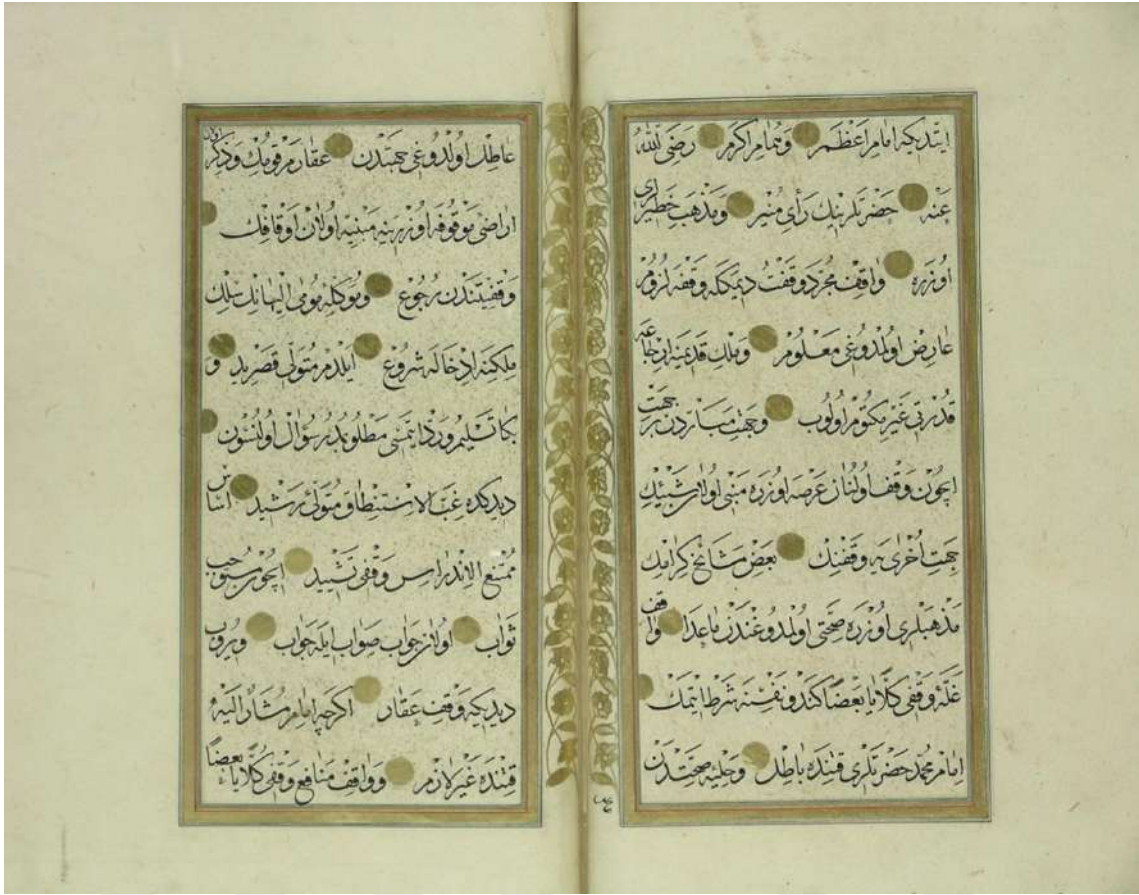 ایتدیكه امام اعظم وهمام اكرم رضی الله
عنه حضرتلرینك رأی منیر ومذهب خطیرلری
اوزره واقف مجرد وقفت دیمكله وقفه لزوم
عارض اولمدوغی معلوم وملك قدیمنه ارجاعه
قدرتی غیر مكتوم اولوب وجهت مباردن بر جهت
ایچون وقف اولنان عرصه اوزره مبنی اولان شیئك
جهت اخری یه وقفنك بعض مشایخ كرامك
مذهبلری اوزره صحتی اولمدوغندن ماعدا واقف
غلهٔ وقفی كلا یا بعضا كندو نفسنه شرط ایتمك
امام محمد حضرتلری قتنده باطل وحلیهٔ صحتدن
عاطل اولدوغی جهتدن عقار مرقومك وذكر اولنان
اراضی موقوفه اوزرینه مبنیه اولان اوقافك
وقفیتندن رجوع وموكلهٔ مومی الیهانك سلك
ملكنه ادخاله شروع ایلدم متولی قصر ید و
بكا تسلیم ورد ایتمسی مطلوبمدر سؤال اولنسون
دیدكده غب الاستنطاق متولئ رشید اساس
ممتنع الاندراس وقفی تشیید ایچون موجب
ثواب اولان جواب صواب ایله جواب ویروب
دیدیكه وقف عقار اكرچه امام مشار الیه
قتنده غیر لازم وواقف منافع وقفی كلا یا بعضا